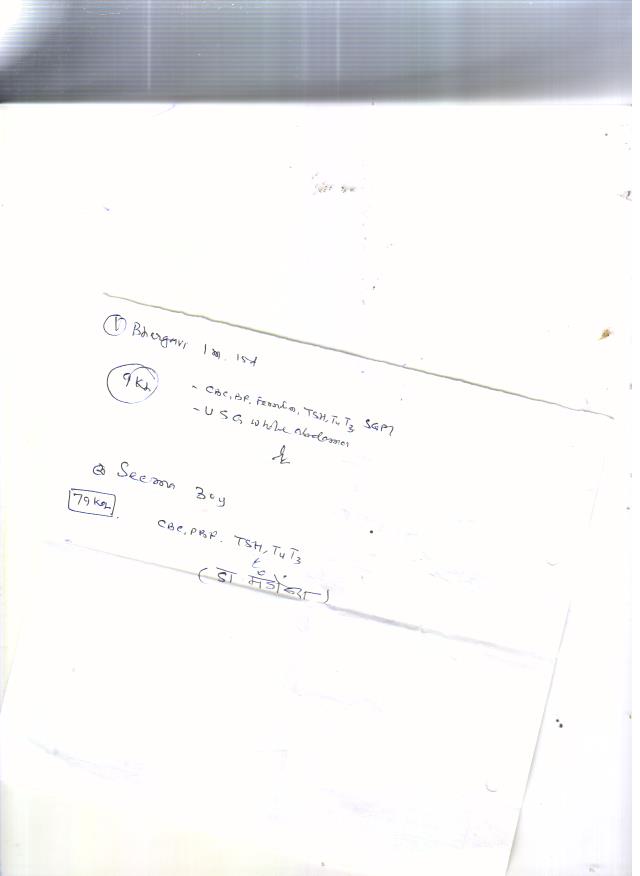 ① Bhargavi
9 Kg
- CBC, BP, Ferritin, TSH, T4 T3 SGPT
- USG whole abdomen
② Seema 30y
79 Kg
CBC, PBP. TSH, T4 T3
( डा